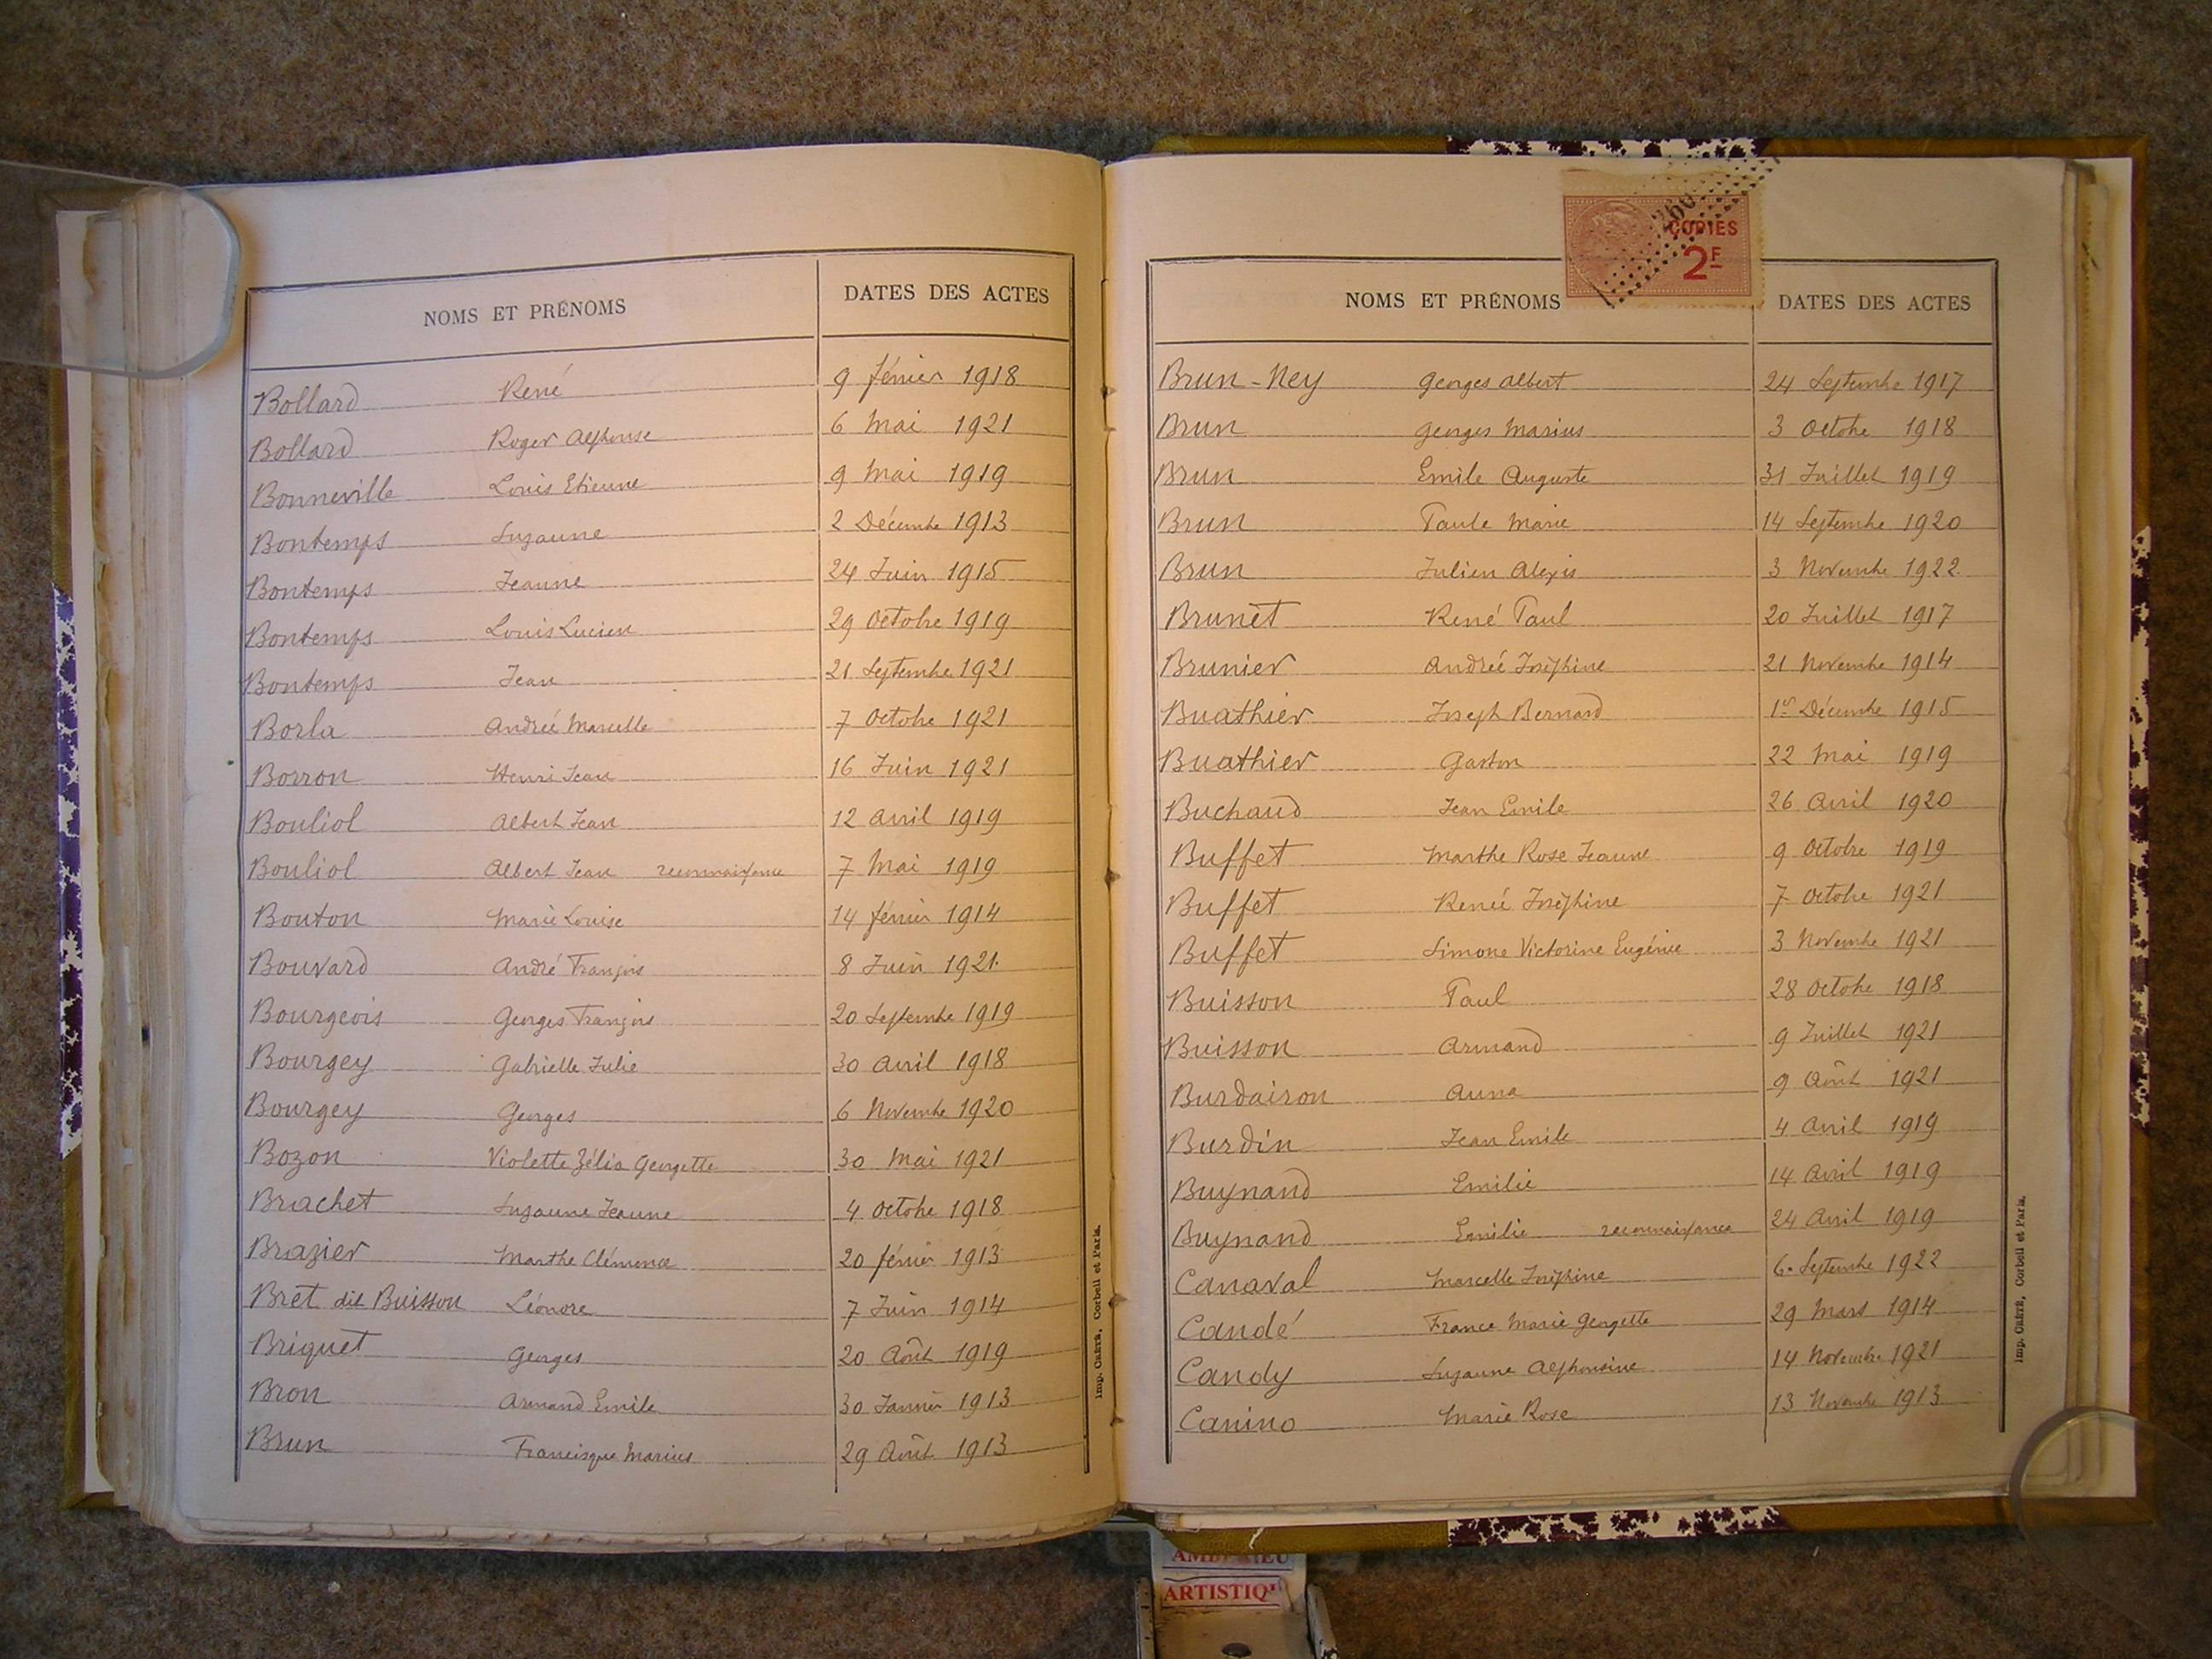 NOMS ET PRÉNOMS DATES DES ACTES
Bollard René 9 février 1918
Bollard Roger Alphonse 6 Mai 1921
Bonneville Louis Etienne 9 Mai 1919
Bontemps Suzanne 2 Décembre 1913
Bontemps Jeanne 24 Juin 1915
Bontemps Louis Lucien 29 Octobre 1919
Bontemps Jean 21 Septembre 1921
Borla Andrée Marcelle 7 Octobre 1921
Borron Henri Jean 16 Juin 1921
Bouliol Albert Jean 12 Avril 1919
Bouliol Albert Jean reconnaissance 7 Mai 1919
Bouton Marie Louise 14 février 1914
Bouvard André François 8 Juin 1921
Bourgeois Georges François 20 Septembre 1919
Bourgey Gabrielle Julie 30 Avril 1918
Bourgey Georges 6 Novembre 1920
Bozon Violette Zélia Georgette 30 Mai 1921
Brachet Suzanne Jeanne 4 Octobre 1918
Brazier Marthe Clémence 20 février 1913
Bret dit Buisson Léonore 7 Juin 1914
Briquet Georges 20 Août 1919
Bron Armand Emile 30 Janvier 1913
Brun Francisque Marius 29 Août 1913
Imp. Caërs, Corbeil et Paris.
COPIES
2F
NOMS ET PRÉNOMS DATES DES ACTES
Brun-Ney Georges Albert 24 Septembre 1917
Brun Georges Marius 3 Octobre 1918
Brun Emile Auguste 31 Juillet 1919
Brun Paule Marie 14 Septembre 1920
Brun Julien Alexis 3 Novembre 1922
Brunet René Paul 20 Juillet 1917
Brunier Andrée Joséphine 21 Novembre 1914
Buathier Joseph Bernard 1er Décembre 1915
Buathier Gaston 22 Mai 1919
Buchaud Jean Emile 26 Avril 1920
Buffet Marthe Rose Jeanne 9 Octobre 1919
Buffet Renée Joséphine 7 Octobre 1921
Buffet Simone Victorine Eugénie 3 Novembre 1921
Buisson Paul 28 Octobre 1918
Buisson Armand 9 Juillet 1921
Burdairon Anna 9 Août 1921
Burdin Jean Emile 4 Avril 1919
Buynand Emilie 14 Avril 1919
Buynand Emilie reconnaissance 24 Avril 1919
Canaval Marcelle Joséphine 6 Septembre 1922
Candé France Marie Georgette 29 Mars 1914
Candy Suzanne Alphonsine 14 Novembre 1921
Canino Marie Rose 13 Novembre 1913
Imp. Caërs, Corbeil et Paris.
ARTISTIQ